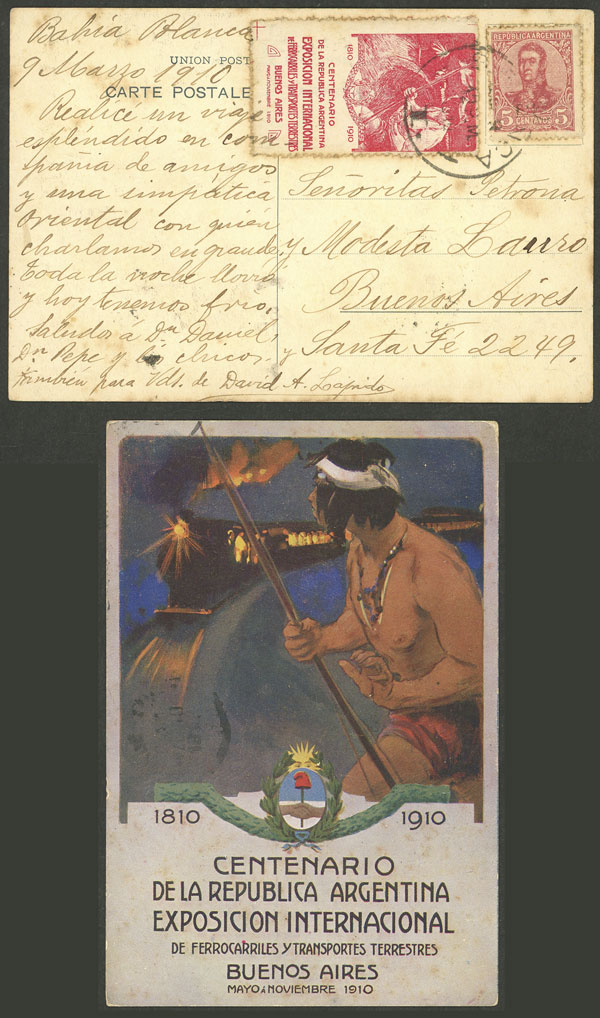 Bahía Blanca
9 Marzo 1910
UNION POST
CARTE POSTALE
Realice un viaje
espléndido en com
pania de amigos
y una simpática
Oriental con quien
charlamos en grande,
Toda la noche llovió
y hoy tenemos frio.
Saludos á Dn Daniel,
Dn Pepe y chicos y
también para Vds. de David A. Lapido
1810
CENTENARIO
DE LA REPUBLICA ARGENTINA
EXPOSICION INTERNACIONAL
DE FERROCARRILES Y TRANSPORTES TERRESTRES
BUENOS AIRES
MAYO A NOVIEMBRE 1910
1910
REPUBLICA ARGENTINA
5 CENTAVOS 5
Señoritas Petrona
y Modesta Lauro
Buenos Aires
Santa Fé 2249.
1810 1910
CENTENARIO
DE LA REPUBLICA ARGENTINA
EXPOSICION INTERNACIONAL
DE FERROCARRILES Y TRANSPORTES TERRESTRES
BUENOS AIRES
MAYO A NOVIEMBRE 1910